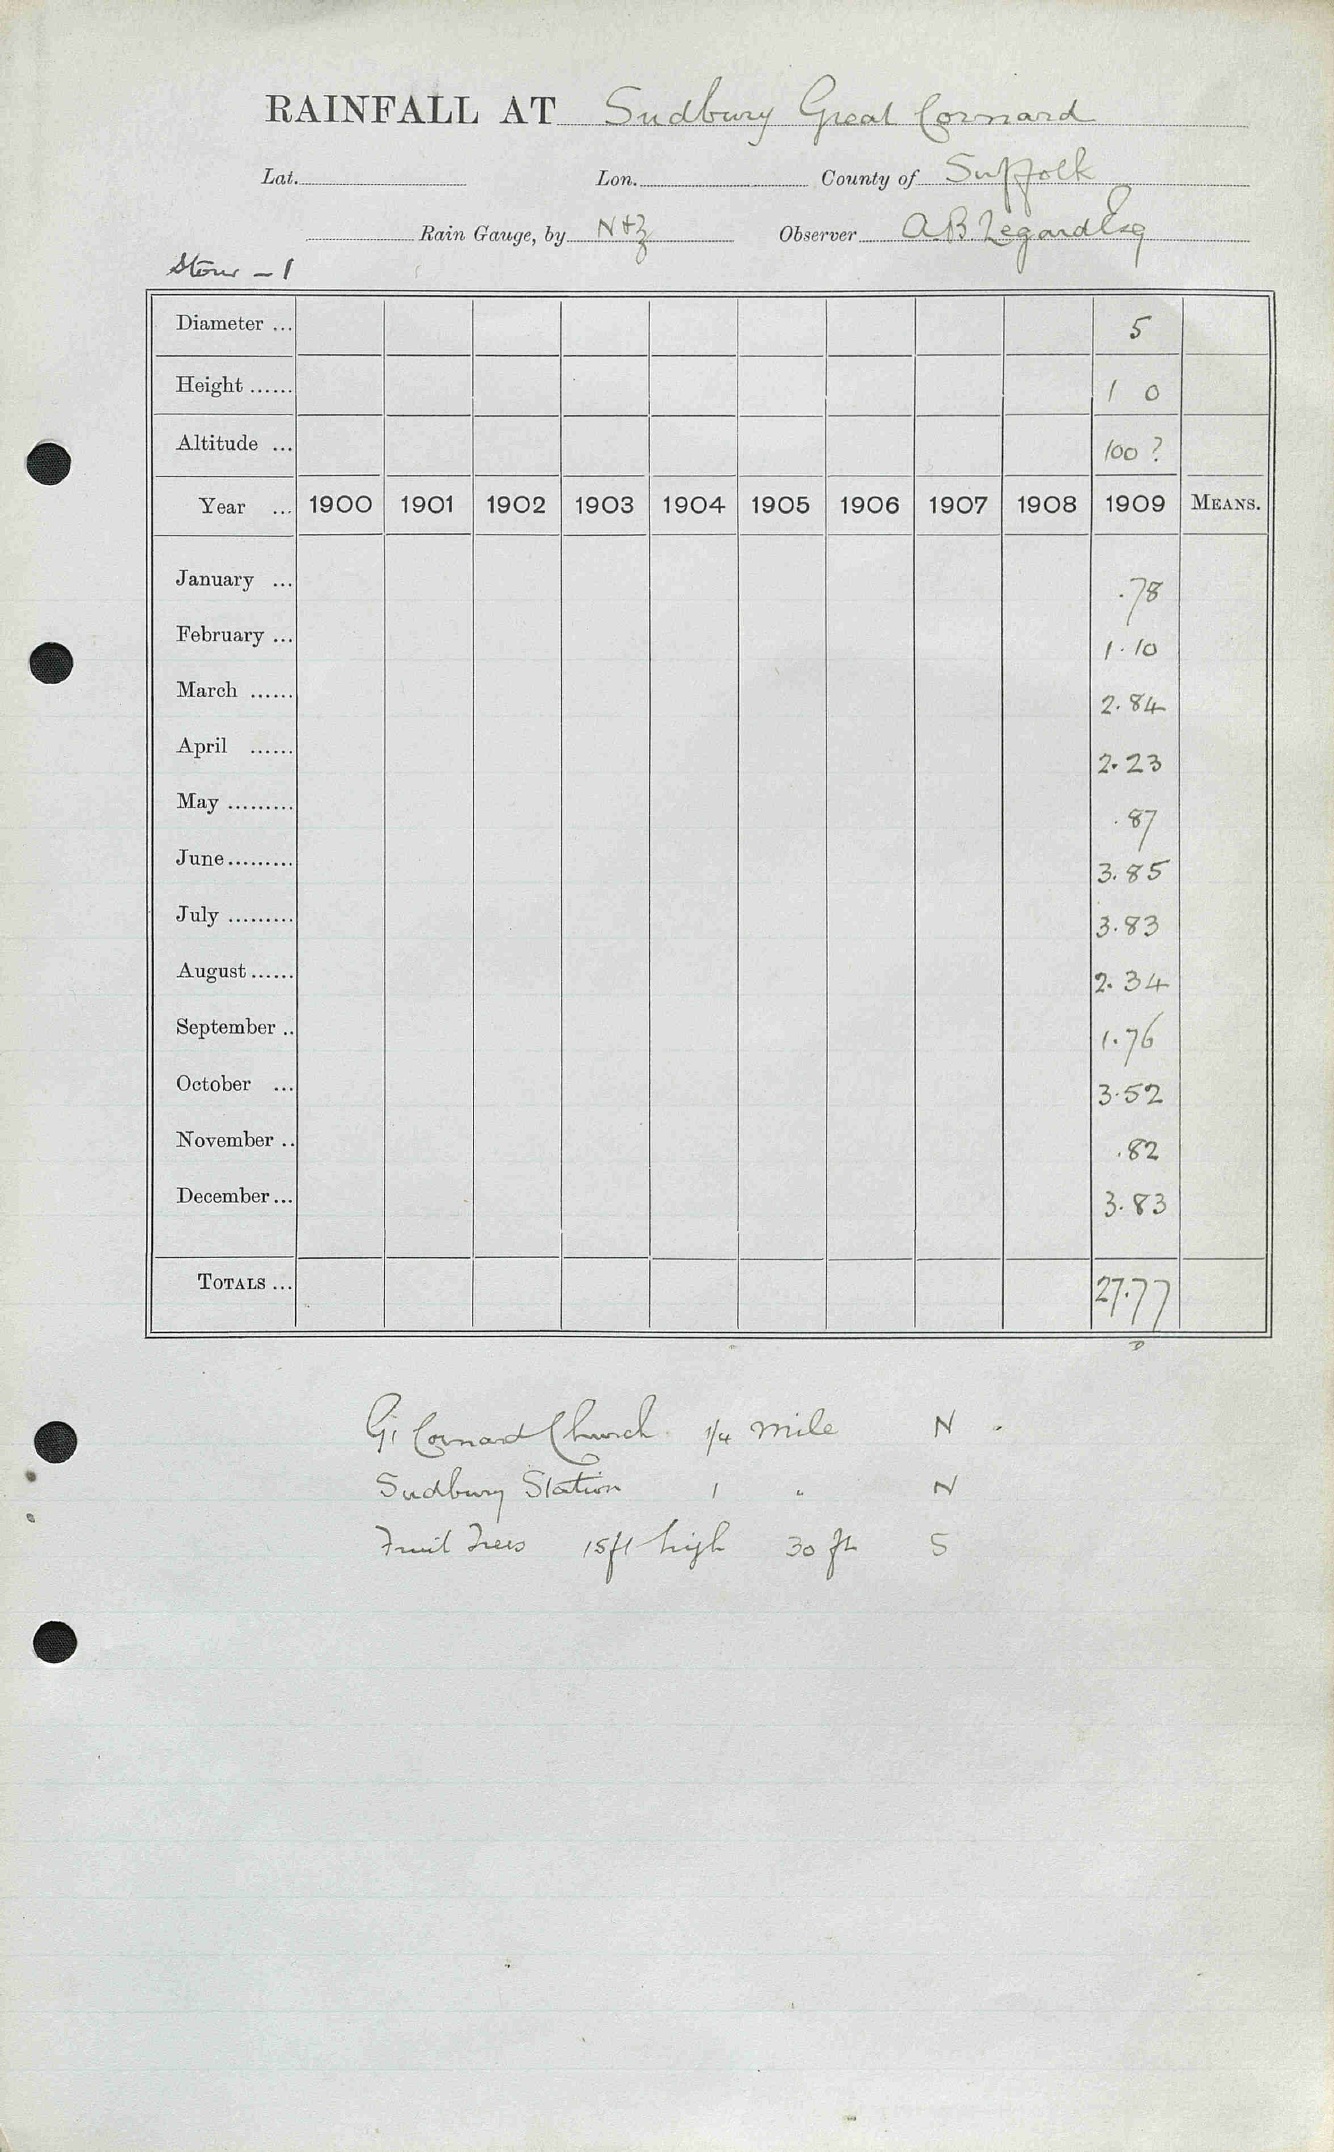 RAINFALL AT Sudbury Great Cornard
Lat. Lon. County of Suffolk
Rain Gauge, by N+Z Observer A B Legard Esq
Stour - 1
Diameter ... 5
Height ...... 1 0
Altitude ... 100 ?
Year ... 1900 1901 1902 1903 1904 1905 1906 1907 1908 1909 MEANS.
January ... .78
February ... 1.10
March ...... 2.84
April ...... 2.23
May ......... .87
June ......... 3.85
July ......... 3.83
August ...... 2.34
September .. 1.76
October ... 3.52
November .. .82
December ... 3.83
TOTALS ... 27.77
Gt Cornard Church 1/4 mile N
Sudbury Station 1 " N
Fruit Trees 15ft high 30 ft S